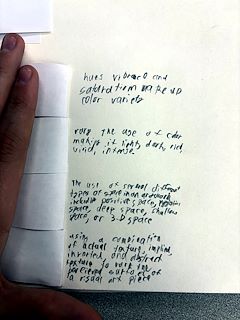 hues vibrance and
saturation make up
color variety
vary the use of color
making it light, dark, rich
vivid, intense
The use of several different
types of space in an artwork
include positive space, negative
space, deep space, shallow
space, or 3-D space
using a combination
of actual texture, implied,
invented, and abstract
texture to vary the
perceived surface of
a visual art piece